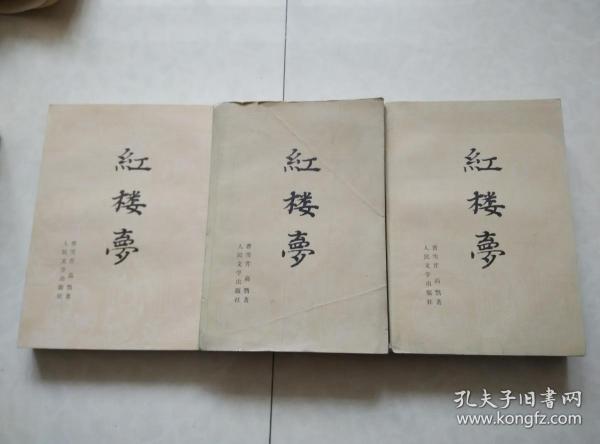 紅楼夢
曹雪芹 高鹗著
人民文学出版社
紅楼夢
曹雪芹 高鹗著
人民文学出版社
紅楼夢
曹雪芹 高鹗著
人民文学出版社
孔夫子旧书网
www.kongfz.com